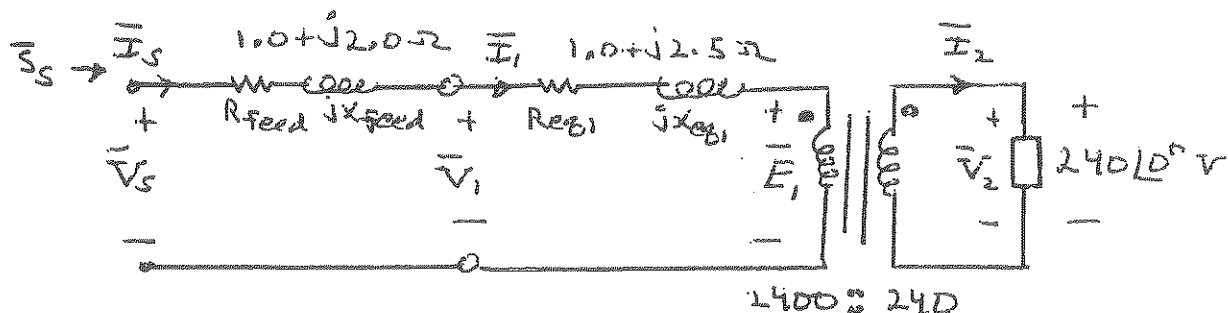 S̅s → I̅s 1.0+j2.0Ω I̅1 1.0+j2.5Ω I̅2
+ Rfeed jXfeed + Req1 jXeq1 + + +
V̅s V̅1 E̅1 V̅2 240∠0° V
− − − − −
2400 :: 240